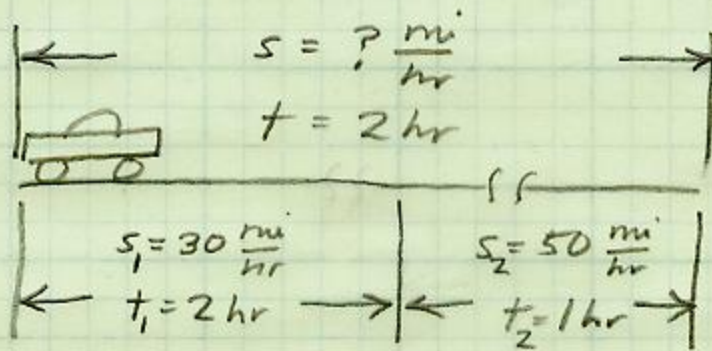 s = ? mi/hr
t = 2 hr
s₁ = 30 mi/hr
t₁ = 2 hr
s₂ = 50 mi/hr
t₂ = 1 hr